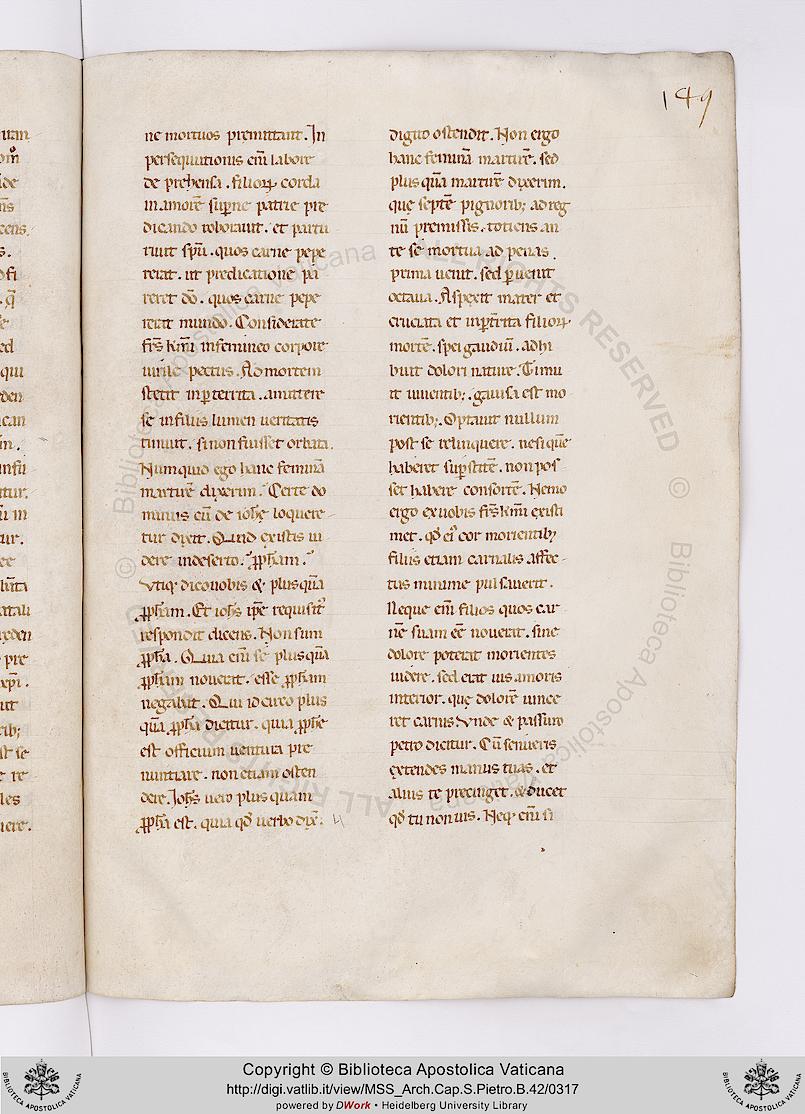 149
ne mortuos premittant. In
persequutionis eni͂ labore
de prehensa. filioꝝ corda
in amore͂ sup̱ne patrie pre
dicando roborauit. et partu
riuit spu͂. quos carne pepe
rerat. ut predicatione pa
reret do͂. quos carne pepe
rerat mundo. Considerate
frs͂ kmi͂ infemineo corpore
uirile pectus. Ad mortem
stetit inp̱territa. amittere
se infiliis lumen ueritatis
timuit. sinon fuisset orbata.
Nunquid ego hanc femina͂
martire͂ dixerim. Certe do
minus cu͂ de ioh͂e loquere
tur dixit. Quid existis ui
dere indeserto. ꝓph͂am.
Vtiqꝫ dico uobis & plusqua͂
ꝓph͂am. Et ioh͂s ip͂e requisit᷒
respondit dicens. Non sum
ꝓph͂a. Quia eni͂ se plusqua͂
ꝓph͂am nouerat. esse ꝓph͂am
negabat. Qui idcirco plus
qua͂ ꝓph͂a dicitur. quia ꝓph͂e
est officium uentura pre
nuntiare. non etiam osten
dere. Ioh͂s uero plus quam
ꝓph͂a est. quia qd͂ uerbo dix͂.
digito ostendit. Non ergo
hanc femina͂ martire͂. sed
plus qua͂ martire͂ dixerim.
que septe͂ pignorib; ad reg
nu͂ premissis. totiens an
te se mortua ad penas
prima uenit. sed p̱uenit
octaua. Aspexit mater et
cruciata et inp̱territa filioꝝ
morte͂. spei gaudiu͂. adhi
buit dolori nature. Timu
it uiuentib;. gauisa est mo
rientib;. Optauit nullum
post se relinquere. ne si que͂
haberet sup̱stite͂. non pos
set habere consorte͂. Nemo
ergo ex uobis frs͂ kmi͂ existi
met. qd͂ ei᷒ cor morientib;
filiis etiam carnalis affec
tus minime pulsauerit.
Neque eni͂ filios quos car
ne͂ suam ee͂ nouerat. sine
dolore poterat morientes
uidere. sed erat uis amoris
interior. que dolore͂ uince
ret carnis Vnde & passuro
petro dicitur. Cu͂ senueris
extendes manus tuas. et
alius te precinget. & ducet
qd͂ tu non uis. Neqꝫ eni͂ si
Copyright © Biblioteca Apostolica Vaticana
http://digi.vatlib.it/view/MSS_Arch.Cap.S.Pietro.B.42/0317
powered by DWork • Heidelberg University Library